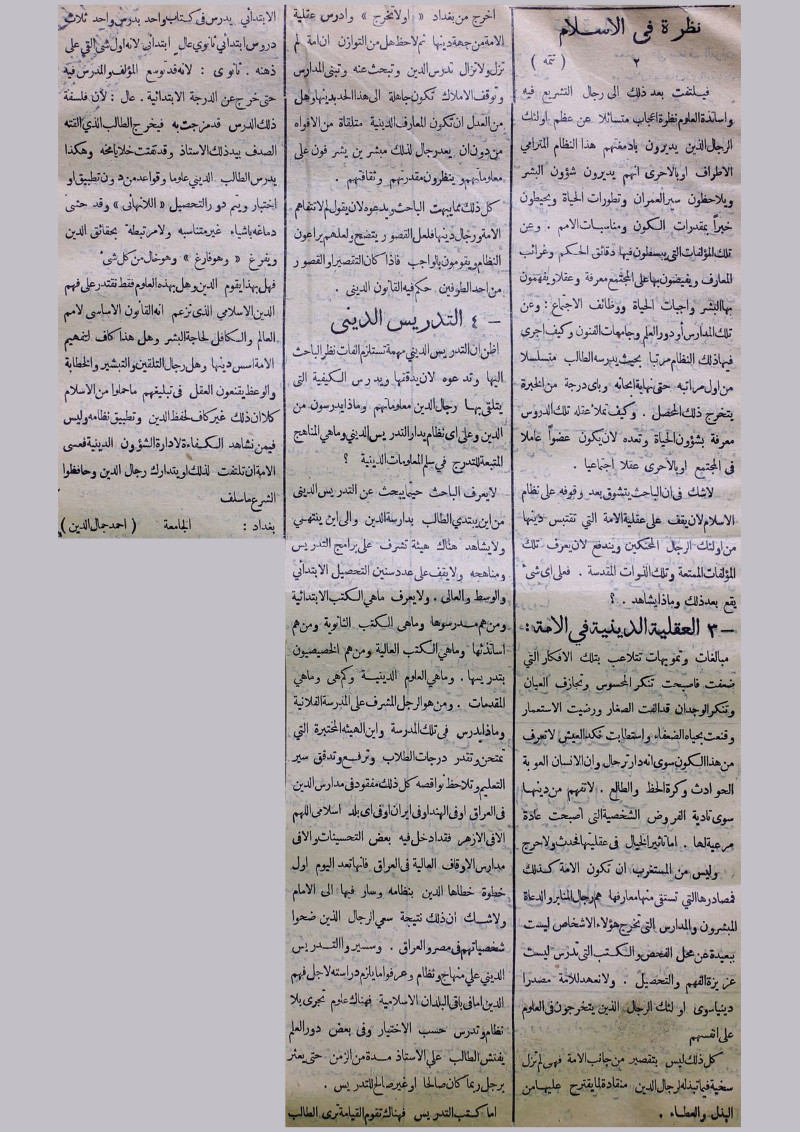 نظرة فى الاسلام
٢
( تتمه )
فيلتفت بعد ذلك الى رجال التشريع فيه
واساتذة العلوم نظرة اعجاب متسائلا عن عظم اولئك
الرجال الذين يديرون بادمغتهم هذا النظام المترامي
الاطراف او بالاحرى انهم يديرون شؤون البشر
ويلاحظون سير العمران وتطورات الحياة ويحيطون
خبراً بمقدرات الكون ومناسبات الامم . وعن
تلك المؤلفات التي يبسطون فيها دقائق الحكم وغرائب
المعارف ويفيضون بها على المجتمع معرفة وعقلا ويفهمون
بها البشر واجبات الحياة ووظائف الاجتماع : وعن
تلك المدارس أو دور العلم وجامعات الفنون وكيف اجرى
فيها ذلك النظام مرتبا بحيث يدرسه الطالب متسلسلا
من اول مراتبه حتى نهاية ابحاثه وباى درجة من الخبرة
يتخرج ذلك المحصل . وكيف تملأ عقله تلك الدروس
معرفة بشؤون الحياة وتعده لان يكون عضواً عاملا
فى المجتمع او بالاحرى عقلا اجتماعيا .
لاشك فى ان الباحث يتشوق بعد وقوفه على نظام
الاسلام لان يقف على عقلية الامة التي تقتبس دينها
من اولئك الرجال المحنكين ويندفع لان يعرف تلك
المؤلفات الممتعة وتلك القوات المقدسة . فعلى اى شىء
يقع بعد ذلك وماذا يشاهد . ؟
— ٣ العقلية الدينية في الامة :
مبالغات وتمويهات تتلاعب بتلك الافكار التي
ضعفت فاصبحت تنكر المحسوس وتجازف العيان
وتنكر الوجدان قد الفت الصغار ورضيت الاستعمار
وقنعت بحياة الضعفاء واستطابت نكد العيش لا تعرف
من هذا الكون سوى انه دار ترحال وان الانسان العوبة
الحوادث وكرة الحظ والطالع . لا تفهم من دينها
سوى تادية الفروض الشخصية التى اصبحت عادة
مرعية لها . اما تاثير الخيال فى عقليتها فحدث ولا حرج
وليس من المستغرب ان تكون الامة كذلك
فمصادرها التي تستقى منها معارفها هم رجال المنابر والدعاة
المبشرون والمدارس التى تخرج هؤلاء الاشخاص ليست
ببعيدة عن محل الفحص والكتب التى تدرس ليست
عزيزة الفهم والتحصيل . ولا نعهد للامة مصدرا
دينيا سوى اولئك الرجال الذين يتخرجون فى العلوم
على انفسهم
كل ذلك ليس بتقصير من جانب الامة فهى لم تزل
سخية فيما تبذله لرجال الدين منقادة لما يقترح عليها من
البذل والعطاء .
اخرج من بغداد « اولا تخرج » وادرس عقلية
الامة من جهة دينها ثم لاحظ هل من التوازن ان امة لم
تزل ولا تزال تدرس الدين وتبحث عنه وتبنى المدارس
وتوقف الاملاك تكون جاهلة الى هذا الحد بدينها وهل
من العدل ان تكون المعارف الدينية متلقاة من الافواه
من دون ان يعد رجال لذلك مبشرين يشرفون على
معلوماتهم وينظرون مقدرتهم وثقافتهم .
كل ذلك مما يبهت الباحث ويدعوه لان يقول لم لا تتفاهم
الامة ورجال دينها فلعل القصور يتضح ولعلهم يراعون
النظام ويقومون بالواجب فاذا كان التقصير او القصور
من احد الطرفين حكم فيه القانون الدينى .
— ٤ التدريس الدينى
اظن ان التدريس الديني مهمة تستلزم الفات نظر الباحث
اليها وتدعوه لان يدققها ويدرس الكيفية التى
يتلقى بها رجال الدين معلوماتهم وماذا يدرسون من
الدين وعلى اى نظام يدار التدريس الديني وماهي المناهج
المتبعة للتدرج في سلم المعلومات الدينية ؟
لا يعرف الباحث حينما يبحث عن التدريس الدينى
من اين يبتدي الطالب بدارسة الدين والى اين ينتهي
ولا يشاهد هناك هيئة تشرف على برامج التدريس
ومناهجه ولا يقف على عدد سنين التحصيل الابتدائي
والوسط والعالى . ولا يعرف ماهي الكتب الابتدائية
ومن هم مدرسوها وماهى الكتب الثانوية ومن هم
اساتذتها وماهي الكتب العالية ومن هم الخصيصيون
بتدريسها . وماهي العلوم الدينية وكم هى وماهي
المقدمات . ومن هو الرجل المشرف على المدرسة الفلانية
وماذا يدرس فى تلك المدرسة واين الهيئه المختبرة التي
تمتحن وتقدر درجات الطلاب وترفع وتدقق سير
التعليم وتلاحظ نواقصه كل ذلك مفقود فى مدارس الدين
فى العراق او فى الهند او فى ايران او فى اى بلد اسلامى اللهم
الا فى الازهر فقد ادخل فيه بعض التحسينات والا فى
مدارس الاوقاف العالية فى العراق فانها تعد اليوم اول
خطوة خطاها الدين بنظامه وسار فيها الى الامام
ولا شك أن ذلك نتيجة سعي الرجال الذين ضحوا
شخصياتهم فى مصر والعراق . وسيروا التدريس
الديني علي منهاج ونظام وعرفوا ما يلزم دراسته لاجل فهم
الدين اما فى باقى البلدان الاسلامية فهناك علوم تجرى بلا
نظام وتدرس حسب الاختيار وفى بعض دور العلم
يفتش الطالب علي الاستاذ مدة من الزمن حتى يعثر
برجل ربما كان صالحا او غير صالح للتدريس .
اما كتب التدريس فهناك تقوم القيامة ترى الطالب
الابتدائي يدرس فى كتاب واحد بدرس واحد ثلاث
دروس ابتدائي ثانوي عال . ابتدائي لانه اول شى القي على
ذهنه . ثانوى : لانه قد توسع المؤلف والمدرس فيه
حتى خرج عن الدرجة الابتدائية . عال : لان فلسفة
ذلك الدرس قد مزجت به فيخرج الطالب الذي القته
الصدف بيد ذلك الاستاذ وقد تفتت خلايا مخه وهكذا
يدرس الطالب الديني علوما وقواعد من دون تطبيق او
اختبار ويتم دور التحصيل « اللانهائى » وقد حشى
دماغه باشياء غير متناسبه ولا مرتبطة بحقائق الدين
ويفرغ « وهو فارغ » وهو خال من كل شى
فهل بهذا يقوم الدين وهل بهذه العلوم فقط نقتدر على فهم
الدين الاسلامي الذى نزعم انه القانون الاساسى لامم
العالم والكافل لحاجة البشر وهل هذا كاف لتفهيم
الامة اسس دينها وهل رجال التلقين والتبشير والخطابة
والوعظ يقنعون العقل فى تبليغهم ما حملوا من الاسلام
كلا ان ذلك غير كاف لحفظ الدين وتطبيق نظامه وليس
فيمن نشاهد الكفاءة لادارة الشؤون الدينية فعسى
الامة ان تلتفت لذلك او يتدارك رجال الدين وحافظوا
الشرع ما سلف
بغداد : الجامعة ( احمد جمال الدين )